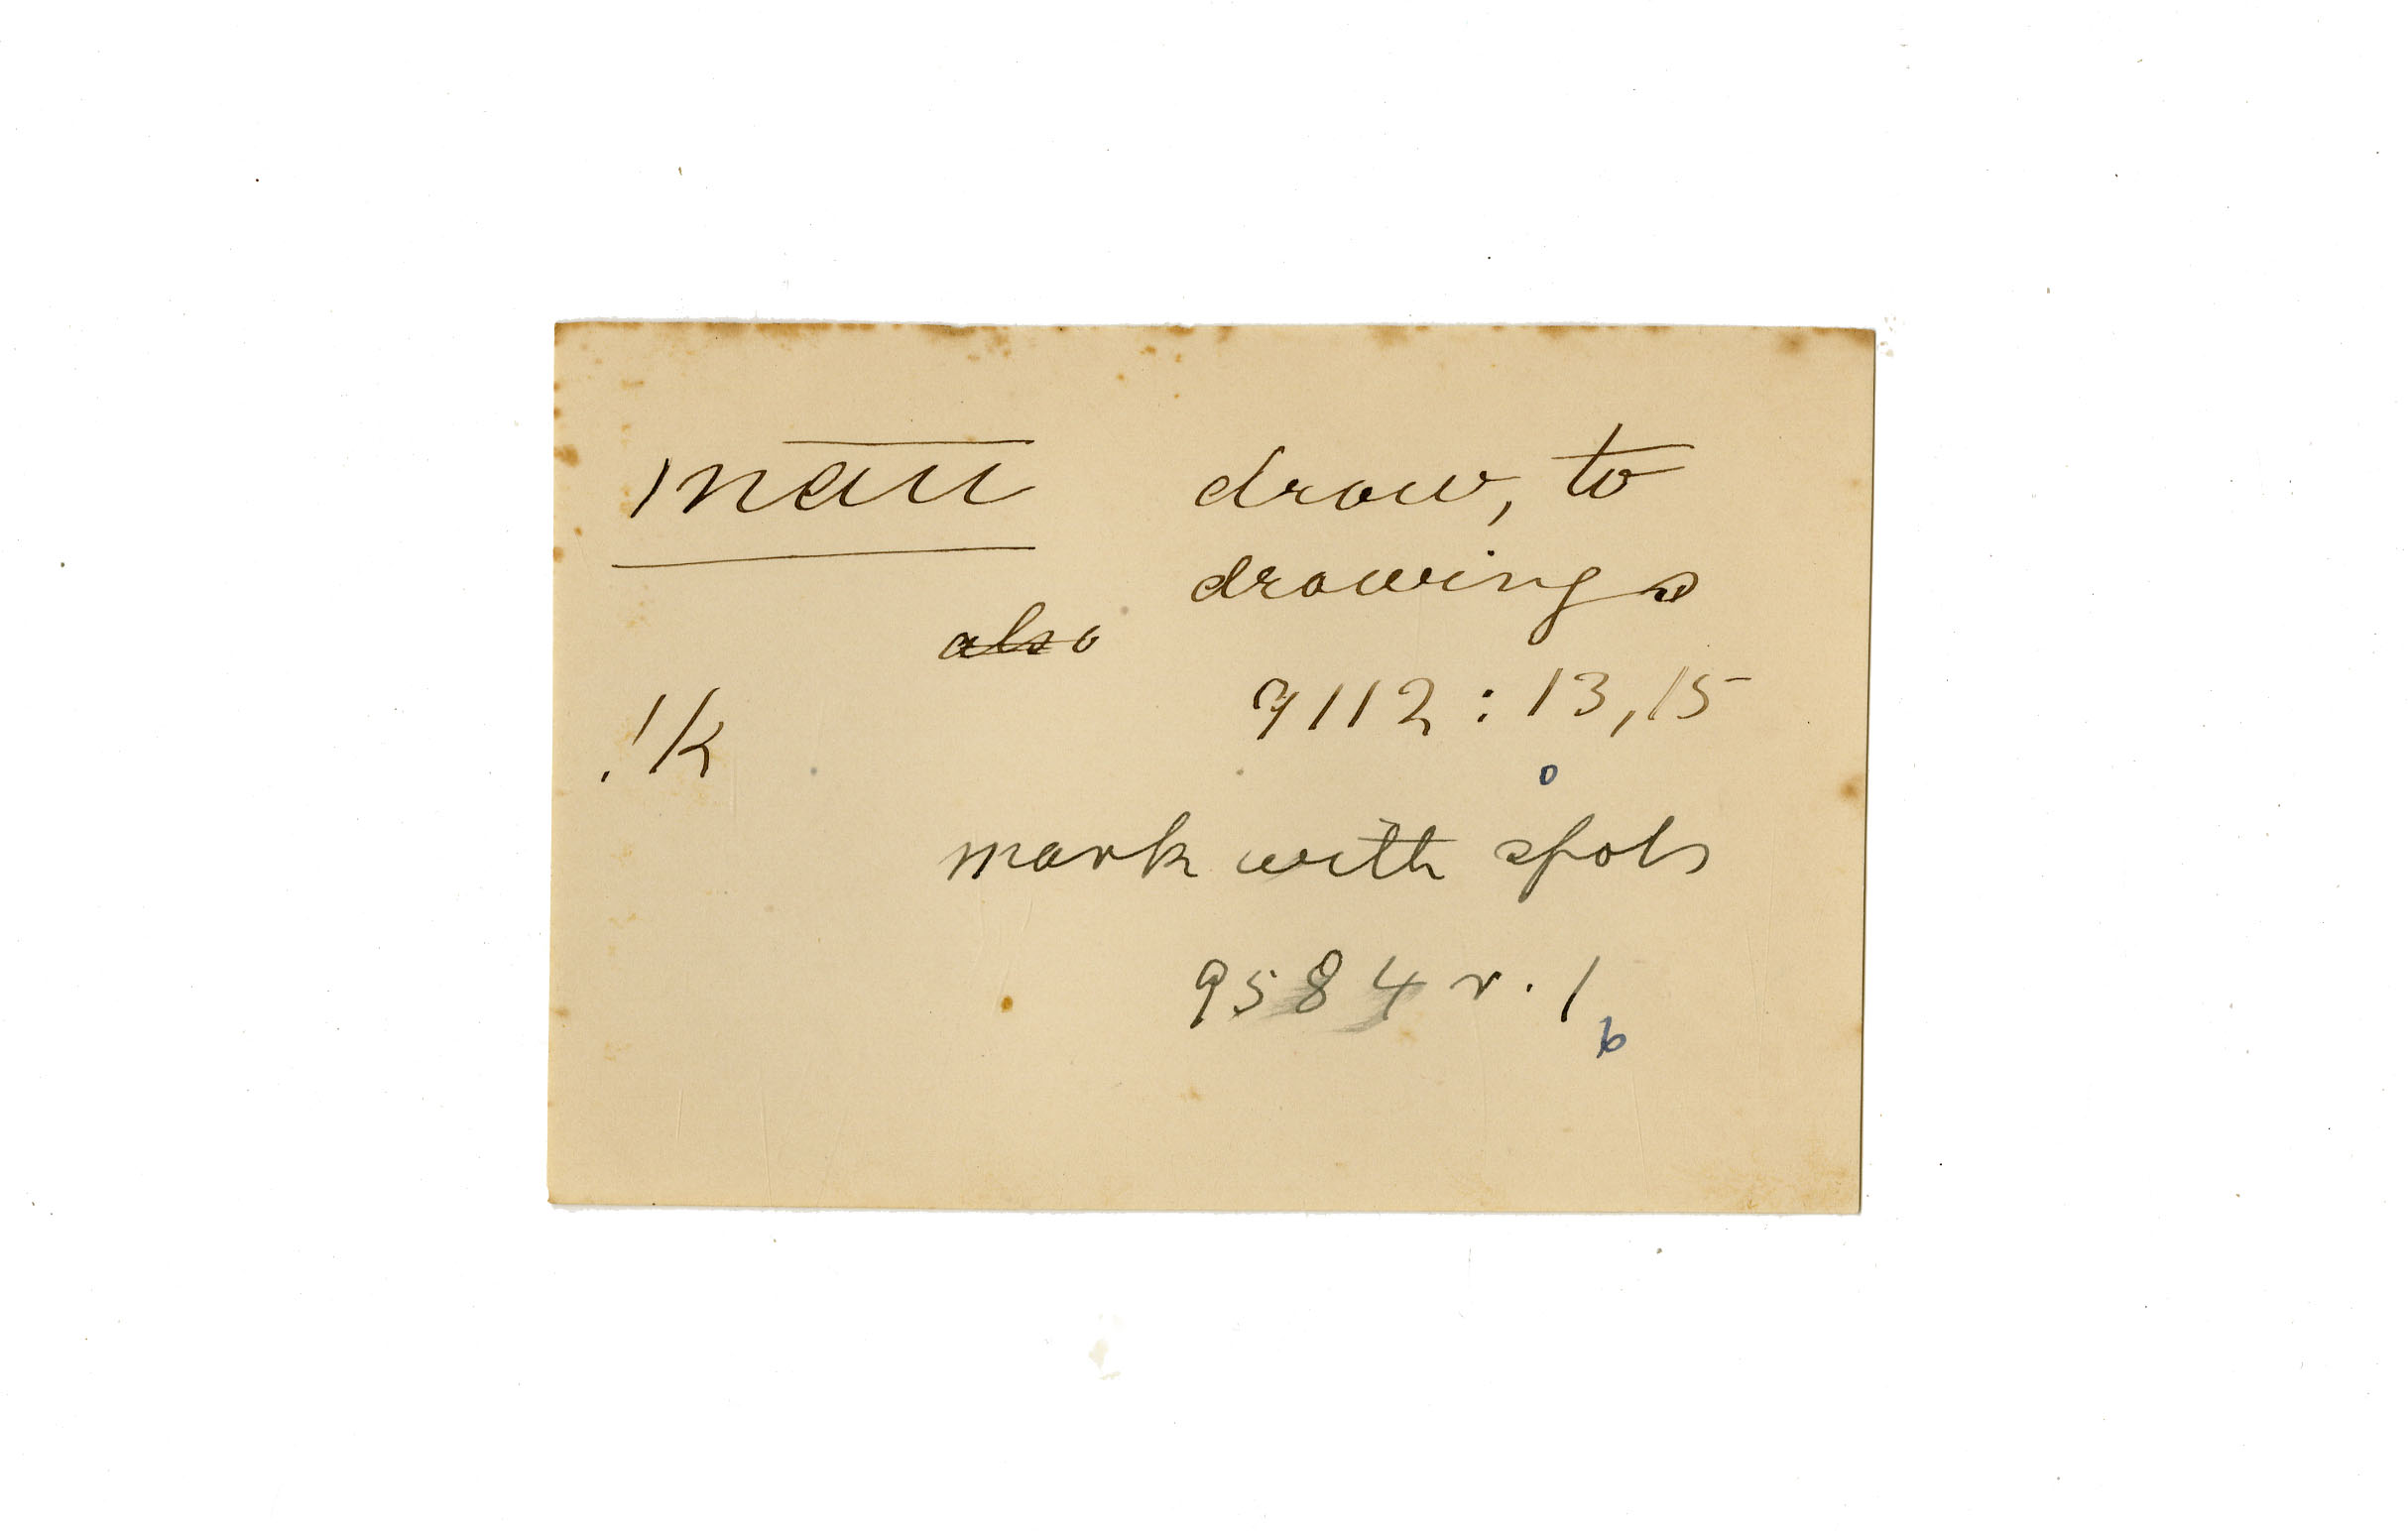 māū draw, to
drawings
also
!k 9112 : 13, 15
o
mark with spots
9584 r. 1
b